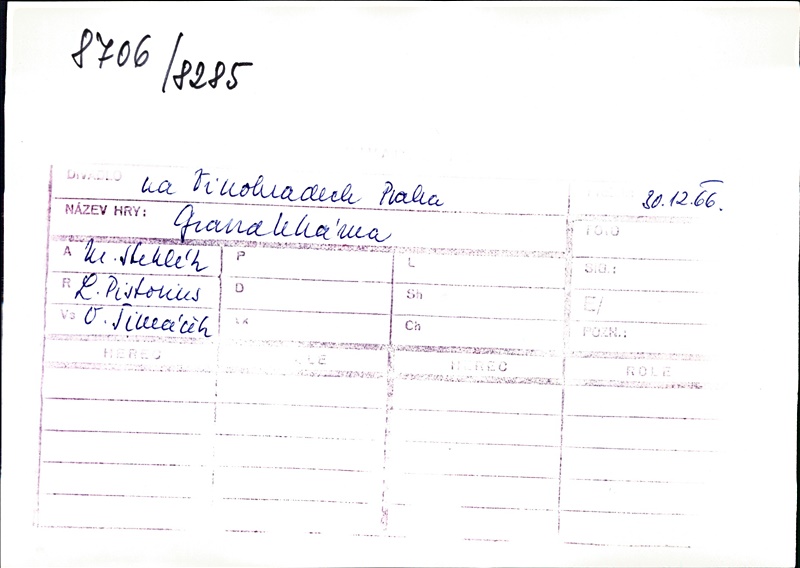 8706/8285
DIVADLO na Vinohradech Praha 30.12.66.
NÁZEV HRY: Grandlhána FOTO
A M. Stehlík P L
R L. Pistorius D Sh E/
Vs V. Šimáček Ch POZN.:
HEREC ROLE HEREC ROLE